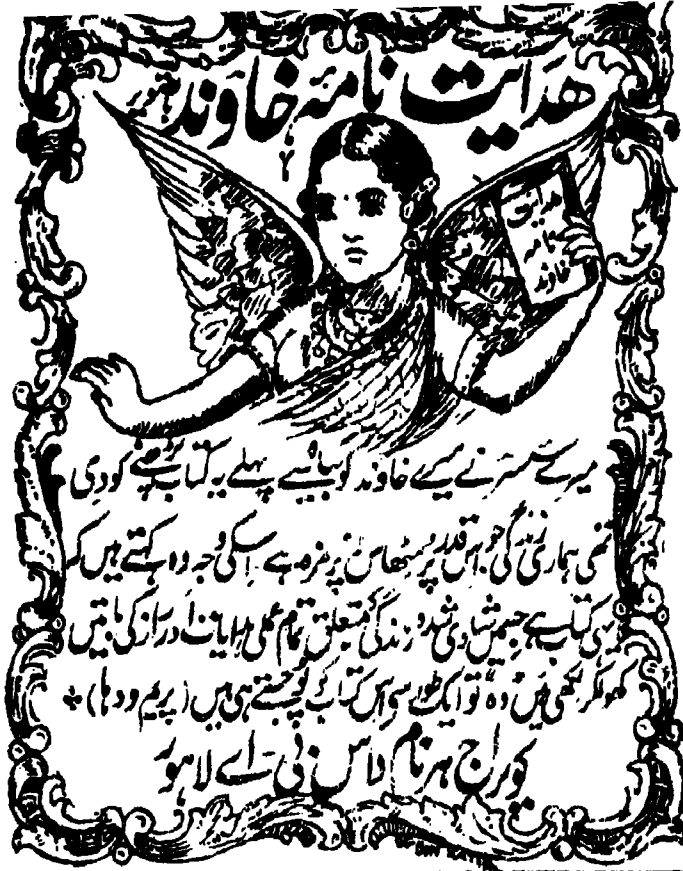 ھدایت نامۂ خاوند لاہور
ھدایت
نامہ
خاوند
میرے سسر نے میرے خاوند کو بیاہ سے پہلے یہ کتاب پڑھنے کو دی
تھی ہماری زندگی جو اس قدر پُر مٹھاس پُر مزہ ہے۔ اسکی وجہ وہ کہتے ہیں کہ
یہی کتاب ہے جسمیں شادی شدہ زندگی کے متعلق تمام عملی ہدایات اور راز کی باتیں
کھولکر لکھی ہیں وہ تو ایک طرح سے اس کتاب کو پوجتے ہی ہیں (پریم ودہا)
کویراج ہرنام داس بی۔اے لاہور